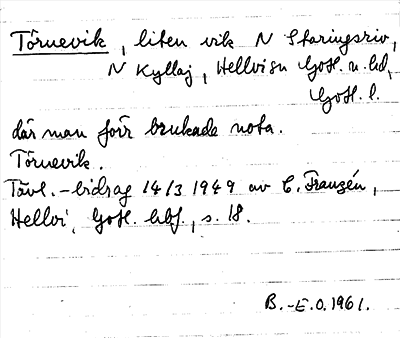 Törnevik, liten vik N Skaringsriv,
N Kyllaj, Hellvi sn Gotl. n. hd,
Gotl. l.
där man förr brukade nota.
Törnevik.
Tävl.-bidrag 14/3 1949 av C. Franzén,
Hellvi, Gotl. hbf., s. 18.
B.-E.O. 1961.